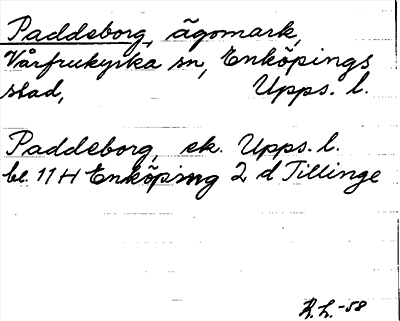 Paddeborg, ägomark,
Vårfrukyrka sn, Enköpings
stad, Upps. l.
Paddeborg, ek. Upps. l.
bl. 11H Enköping 2 d Tillinge
R.L. -58